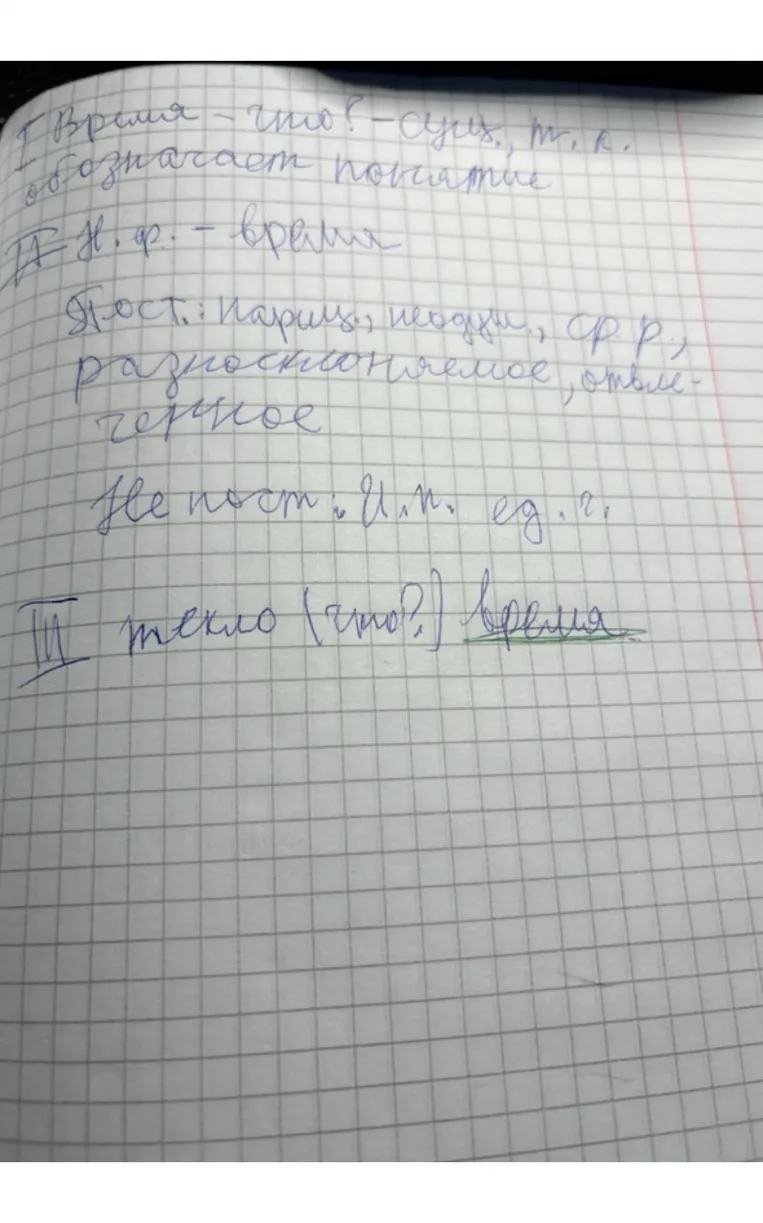 I Время – что? – сущ., т. к.
обозначает понятие
II Н. ф. – время
Пост.: нариц., неодуш., ср. р.,
разносклоняемое, отвле-
ченное
Не пост.: И.п. ед. ч.
III текло (что?) время